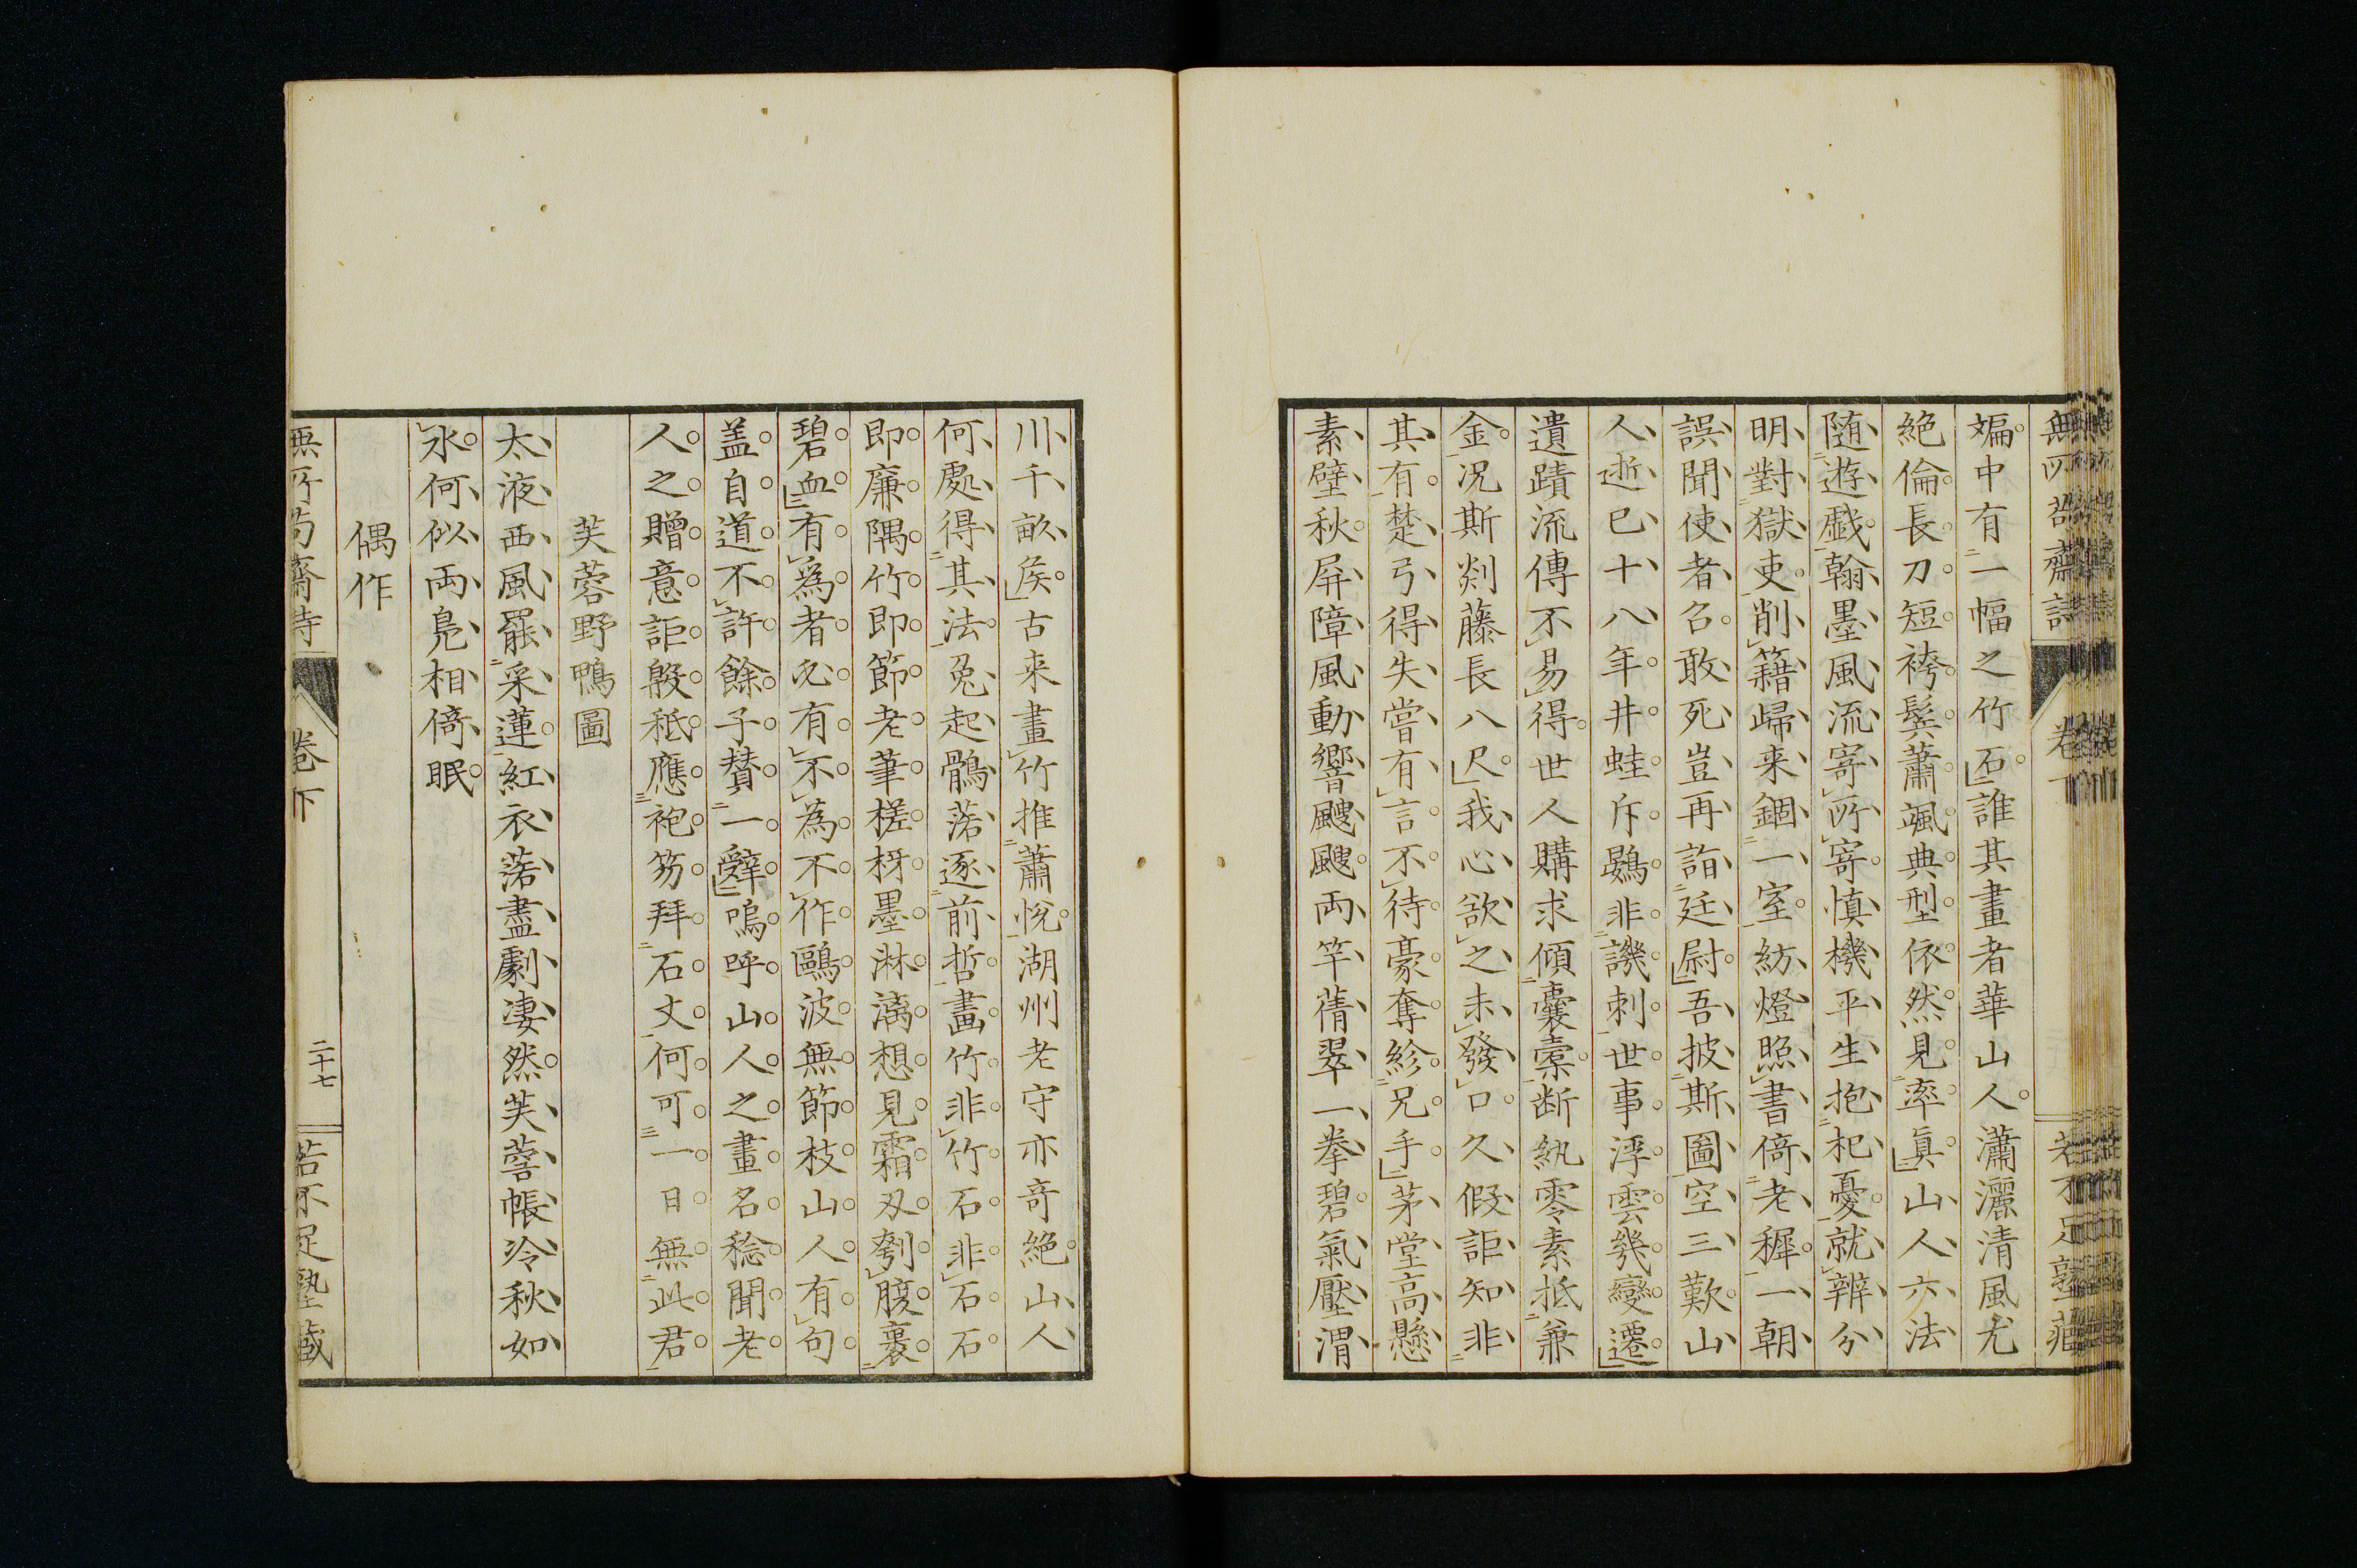 無所苟齋詩 卷下 若不足塾蔵
斒中有一幅之竹石誰其畫者華山人瀟灑清風尤
絶倫長刀短袴鬓蕭颯典型依然見率眞山人六法
随遊戲翰墨風流寄所寄慎機平生抱杞憂就辨分
明對獄吏削籍歸来錮一室紡燈照書倚老穉一朝
誤聞使者召敢死豈再詣廷尉吾披斯圖空三歎山
人逝已十八年井蛙斥鷃非譏刺世事浮雲幾變遷
遺蹟流傳不易得世人購求傾囊槖断紈零素抵兼
金况斯剡藤長八尺我心欲之未發口久假詎知非
其有楚弓得失嘗有言不待豪奪紾兄手茅堂高懸
素壁秋屏障風動響颼颼両竿蒨翠一拳碧氣壓渭
川千畝矦古来畫竹推蕭悅湖州老守亦奇絶山人
何處得其法兔起鶻落逐前哲畵竹非竹石非石石
即廉隅竹即節老筆槎枒墨淋漓想見霜刄剚腹裏
碧血有為者兂有不為不作鷗波無節枝山人有句
盖自道不許餘子賛一辭嗚呼山人之畫名稔聞老
人之贈意詎殷秪應袍笏拜石丈何可一日無此君
芙蓉野鴨圖
太液西風罷采蓮紅衣落盡劇凄然芙蓉帳冷秋如
氷何似両鳧相倚眠
偶作
無所苟齋詩 卷下 二十七 若不足塾蔵